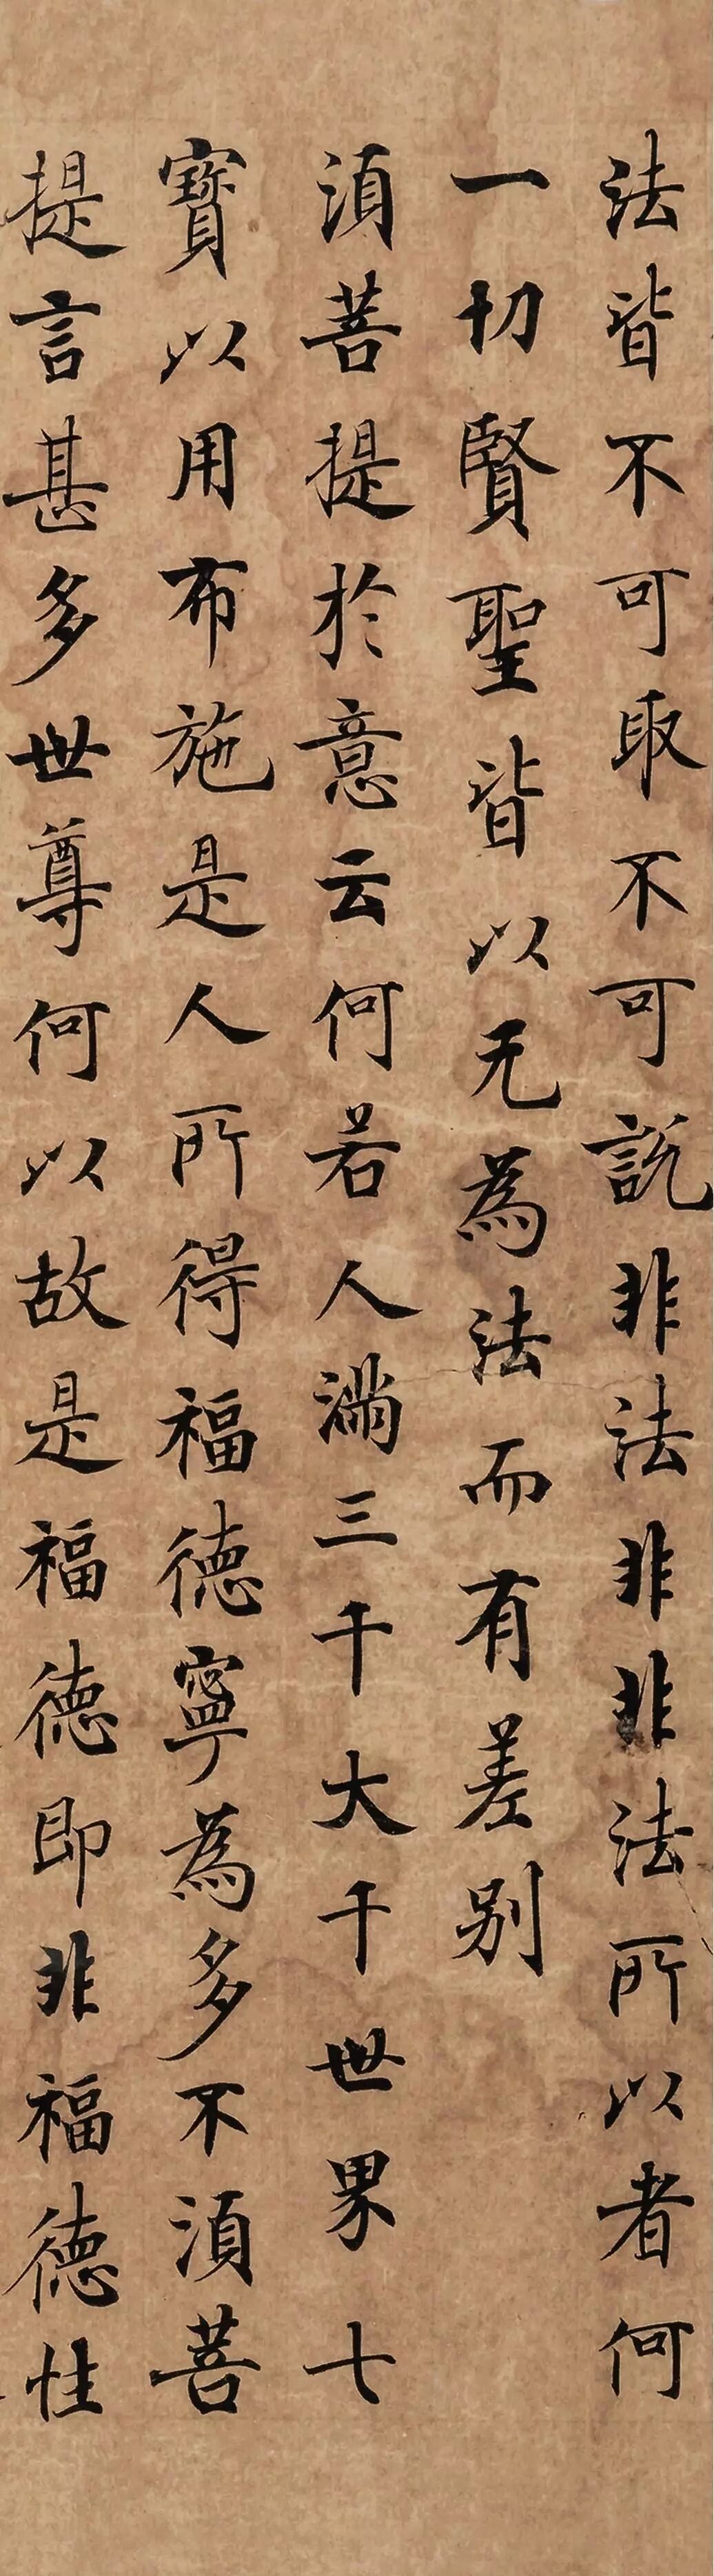 法皆不可取不可說非法非非法所以者何
一切賢聖皆以无為法而有差別
湏菩提於意云何若人滿三千大千世界七
寶以用布施是人所得福德寧為多不湏菩
提言甚多世尊何以故是福德即非福德性